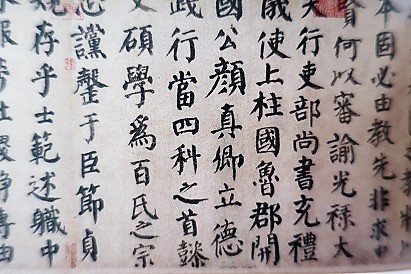 本固必由教先非求中
賢何以審諭光祿大
夫行吏部尚書充禮
儀使上柱國魯郡開
國公顏真卿立德
踐行當四科之首懿
文碩學爲百氏之宗
忠讜罄于臣節貞
規存乎士範述職中
服勞社稷靜專由